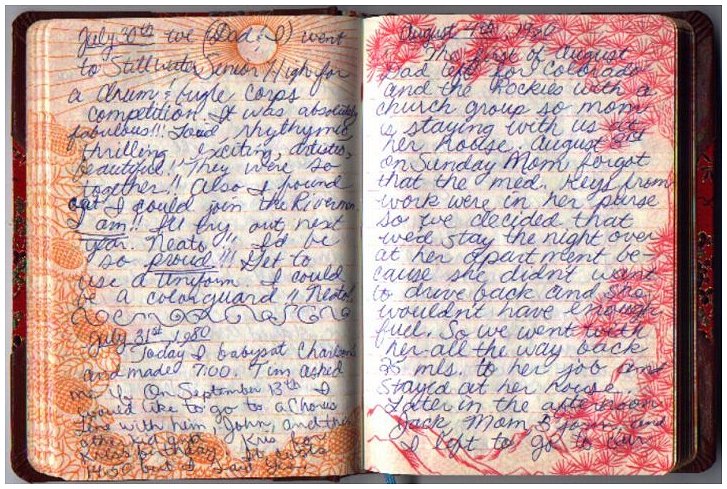 July 30th we (Dad & I) went
to Stillwater Senior High for
a drum & bugle corps
competition. It was absolutely
fabulous!!! Loud, rhythymic
thrilling exciting, artistic,
beautiful!! They were so
together!! Also I found
out I could join the Rivermen
I am!! I'll try out next
year. Neato!! I'd be
so proud!!! Get to
use a uniform. I could
be a colorguard!! Neato!
July 31st, 1980
Today I babysat Charlsons
and made 7:00. Tim asked
me if On September 13th I
would like to go to a Chorus
Line with him, John, and
Kris for
birthday. It costs
14.50 but I said yes.
August 4th, 1980
The first of August
Dad left for Colorado
and the Rockies with a
church group so mom
is staying with us at
her house. August 3rd
on Sunday Mom forgot
that the med. keys from
work were in her purse
so we decided that
we'd stay the night over
at her apartment be-
cause she didn't want
to drive back and she
wouldn't have enough
fuel. So we went with
her all the way back
35 mls. to her job and
stayed at her house.
Later in the afternoon
Jack, Mom & John, and
I left to go to our